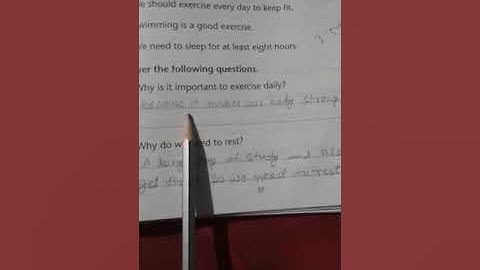 e should exercise every day to keep fit.
wimming is a good exercise.
e need to sleep for at least eight hours.
3.5
ver the following questions.
Why is it important to exercise daily?
because it makes our body strong
Why do w need to rest?
A long day of study and
get so we need rest